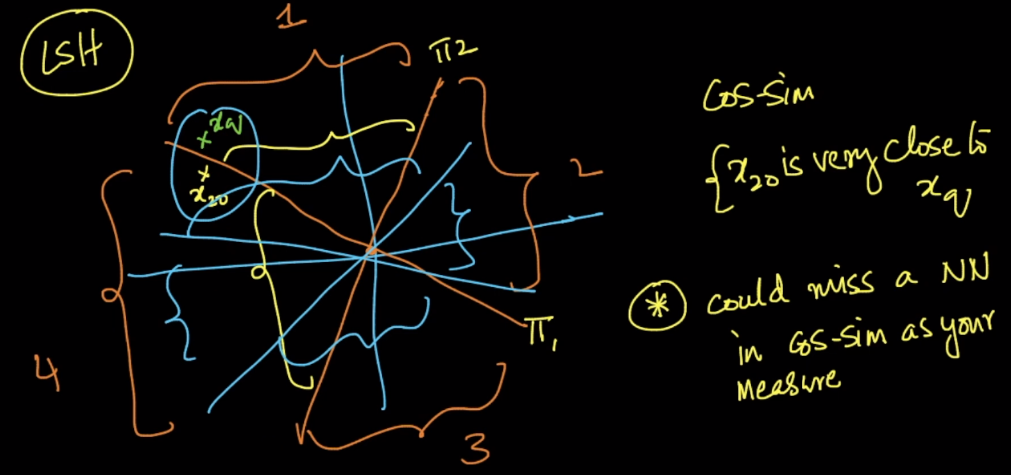 LSH
1
π2
xq
x20
2
π1
4
3
Cos-sim
{x20 is very close to
xq
* could miss a NN
in cos-sim as your
measure